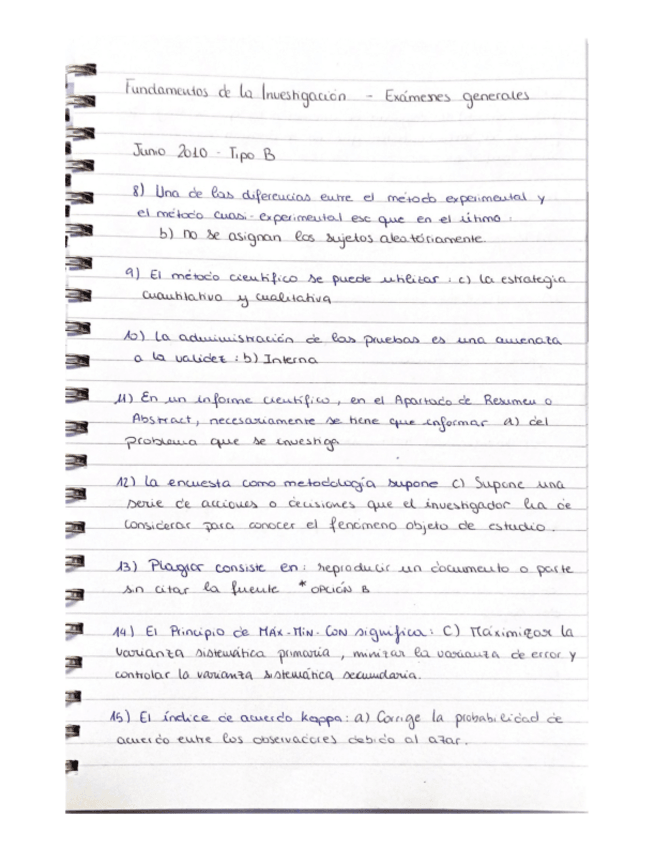 Fundamentos de la Investigación - Exámenes generales
Junio 2010 - Tipo B
8) Una de las diferencias entre el método experimental y
el método cuasi-experimental esc que en el útimo:
b) no se asignan los sujetos aleatóriamente.
9) El método científico se puede utilizar: c) la estrategia
cuantitativa y cualitativa
10) La administración de las pruebas es una amenaza
a la validez: b) Interna
11) En un informe científico, en el Apartado de Resumen o
Abstract, necesariamente se tiene que informar a) del
problema que se investiga
12) La encuesta como metodología supone C) Supone una
serie de acciones o decisiones que el investigador ha de
considerar para conocer el fenómeno objeto de estudio.
13) Plagiar consiste en: reproducir un documento o parte
sin citar la fuente * OPCIÓN B
14) El Principio de MAX-MIN-CON significa: C) Maximizar la
varianza sistemática primaria, minizar la varianza de error y
controlar la varianza sistemática secundaria.
15) El índice de acuerdo kappa: a) Corrige la probabilidad de
acuerdo entre los observadores debido al azar.